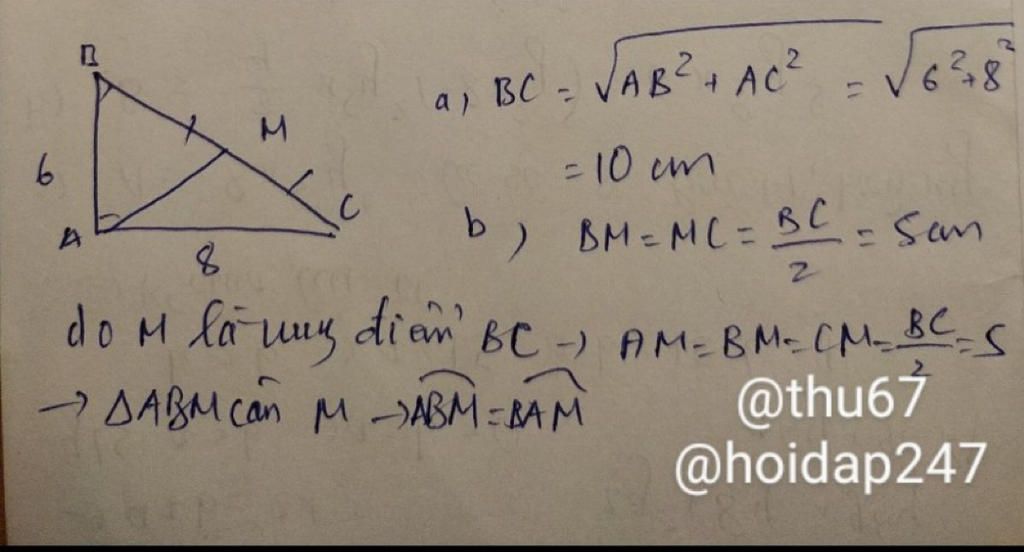 B
6
M
A
C
8
a, BC = √AB² + AC² = √6²+8²
= 10 cm
b) BM = MC = BC/2 = 5cm
do M là trung điểm BC → AM = BM = CM = BC/2 = 5
→ ΔABM cân M → ABM = BAM
@thu67
@hoidap247